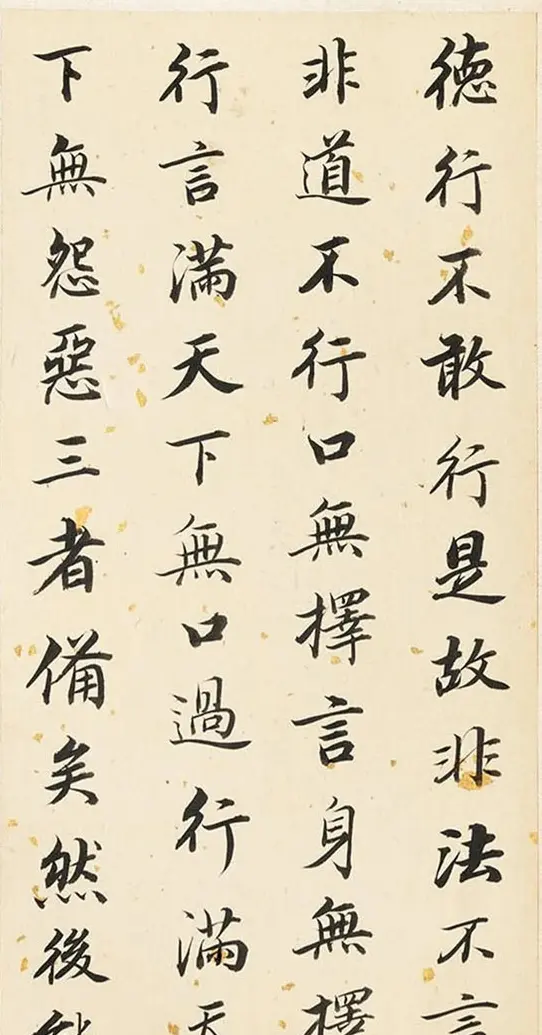 德行不敢行是故非法不言
非道不行口無擇言身無擇
行言滿天下無口過行滿天
下無怨惡三者備矣然後能